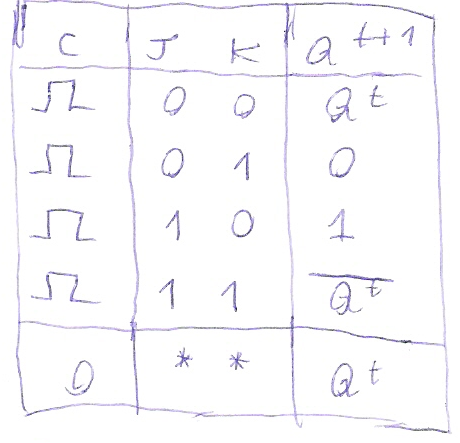 C J K Q t+1
0 0 Q t
0 1 0
1 0 1
1 1 Q̅ t̅
0 * * Q t